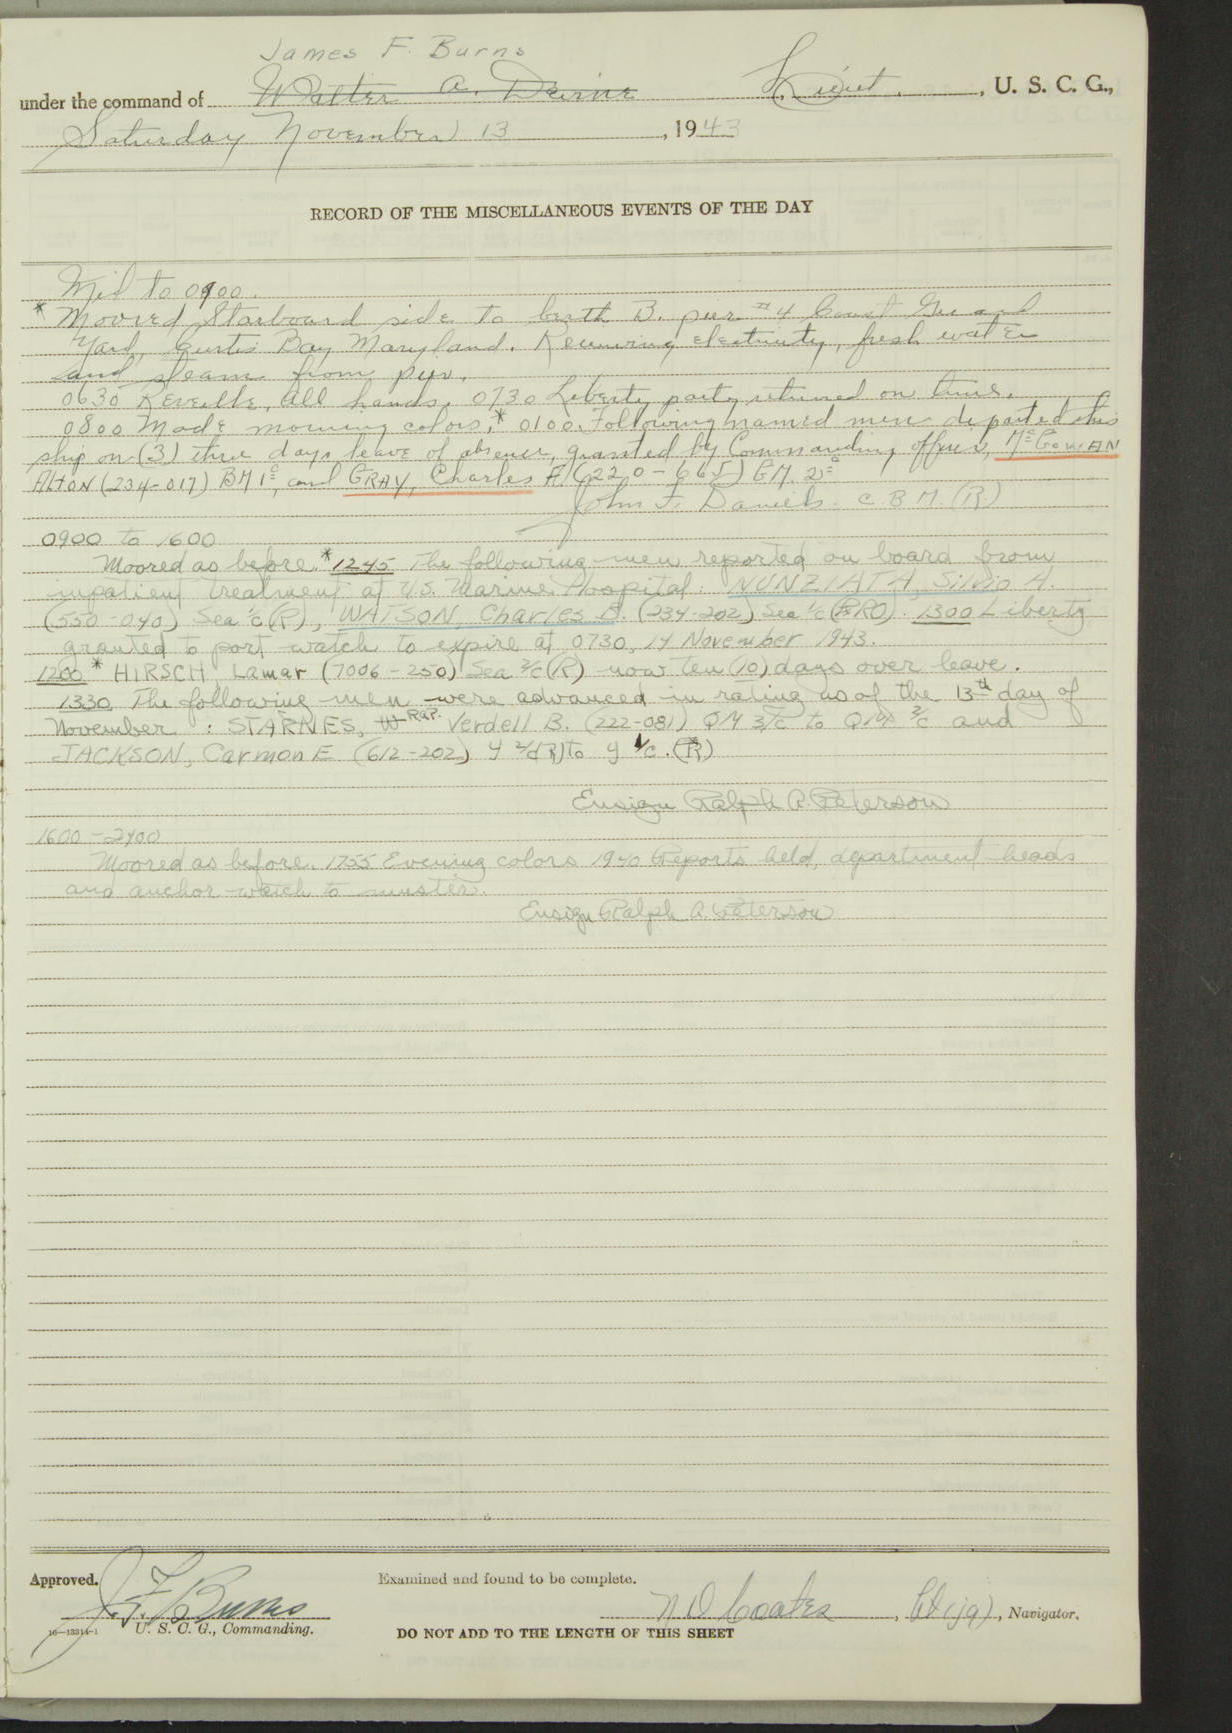 James F. Burns
under the command of Walter A. Devine Lieut., U. S. C. G.,
Saturday November 13, 1943
RECORD OF THE MISCELLANEOUS EVENTS OF THE DAY
Mid to 0900.
* Moored Starboard side to berth B. pier #4 Coast Guard
Yard, Curtis Bay Maryland. Receiving electricity, fresh water
and steam from pier.
0630 Reveille, all hands. 0730 Liberty party returned on time.
0800 Made morning colors. * 0100. Following named men departed this
ship on (3) three days leave of absence, granted by Commanding officer, McGOWAN
Alton (234-017) BM1c, and GRAY, Charles P. (220-665) GM. 2c
John F. Daniels. C.B.M. (R)
0900 to 1600
Moored as before. * 1245 The following men reported on board from
inpatient treatment at U.S. Marine Hospital: NUNZIATA, Silvio A.
(550-040) Sea 1/c (R), WATSON, Charles B. (234-202) Sea 1/c (RO). 1300 Liberty
granted to port watch to expire at 0730, 14 November 1943.
1200 * HIRSCH, Lamar (7006-250) Sea 2/c (R) now ten (10) days over leave.
1330 The following men were advanced in rating as of the 13th day of
November: STARNES, RAP. Verdell B. (222-081) QM 3/c to QM 2/c and
JACKSON, Carmon E (612-202) Y 2/c (R) to Y 1/c. (R)
Ensign Ralph A. Peterson
1600-2400
Moored as before. 1755 Evening colors 1940 Reports held, department heads
and anchor watch to muster.
Ensign Ralph A. Peterson
Approved.
J. F. Burns
U. S. C. G., Commanding.
16-13314-1
Examined and found to be complete.
N D Coates, Lt (jg), Navigator.
DO NOT ADD TO THE LENGTH OF THIS SHEET